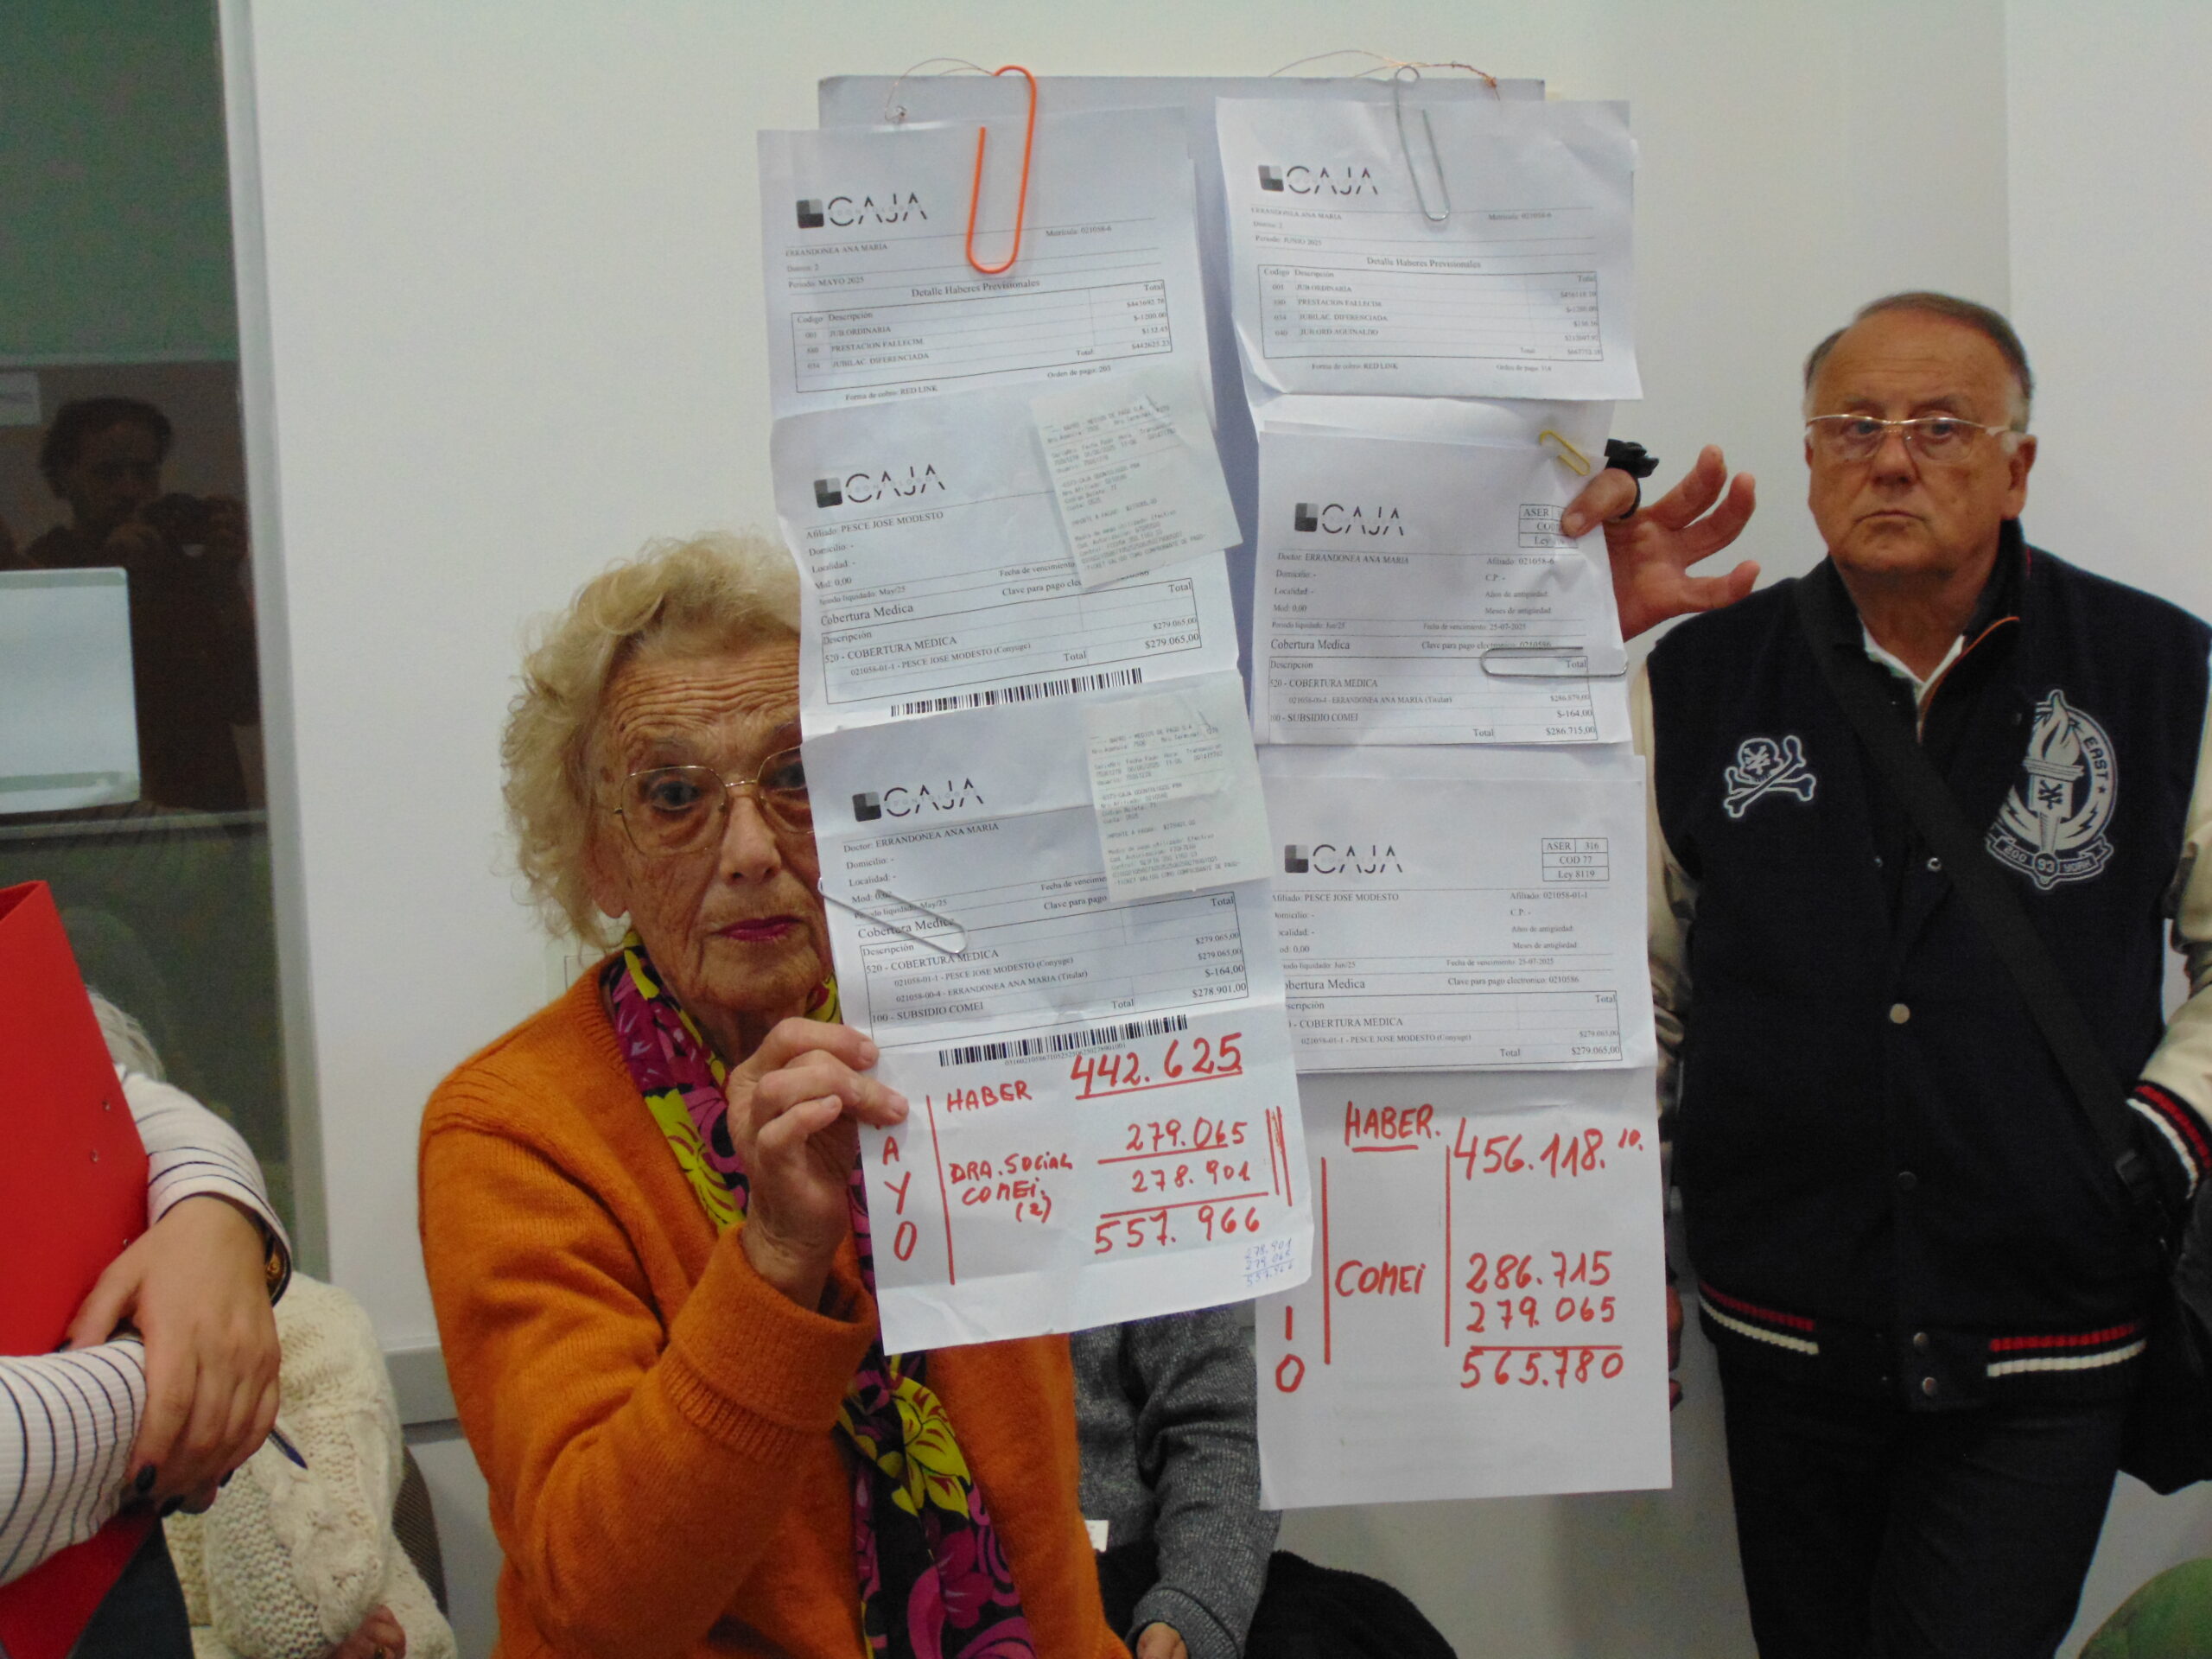 CAJA
ERRANDONEA ANA MARIA
Matricula: 021058-6
Periodo: MAYO 2025
Detalle Haberes Previsionales
Codigo Descripción Total
001 JUB.ORDINARIA
PRESTACION FALLECIM $-1200.00
034 JUBILAC. DIFERENCIADA $132.45
Total: $442625.23
Forma de cobro: RED LINK
Orden de pago: 203
CAJA
Afiliado: PESCE JOSE MODESTO
Domicilio: -
Localidad: -
Mod: 0,00
Periodo liquidado: May/25
Fecha de vencimiento
Cobertura Medica
Clave para pago elec
Descripción Total
520 - COBERTURA MEDICA
021058-01-1 - PESCE JOSE MODESTO (Conyuge) $279.065,00
Total $279.065,00
CAJA
Doctor: ERRANDONEA ANA MARIA
Domicilio: -
Localidad: -
Mod: 0,00
Periodo liquidado: May/25
Fecha de vencimie
Cobertura Medica
Clave para pago
Descripción Total
520 - COBERTURA MEDICA
021058-01-1 - PESCE JOSE MODESTO (Conyuge) $279.065,00
021058-00-4 - ERRANDONEA ANA MARIA (Titular) $279.065,00
100 - SUBSIDIO COMEI $-164,00
Total $278.901,00
AYO
HABER 442.625
279.065
DRA. SOCIAL
COMEI. 278.901
(2)
557.966
278.901
279.065
557.966
CAJA
ERRANDONEA ANA MARIA
Matricula: 021058-6
Periodo: JUNIO 2025
Detalle Haberes Previsionales
Codigo Descripción Total
001 JUB.ORDINARIA
PRESTACION FALLECIM $-1200.00
034 JUBILAC. DIFERENCIADA
040 JUB.ORD.AGUINALDO
Total
Forma de cobro: RED LINK
Orden de pago: 314
CAJA
ASER
CO
Ley
Doctor: ERRANDONEA ANA MARIA
Afiliado: 021058-6
Domicilio: -
C.P: -
Localidad -
Años de antigüedad
Mod: 0,00
Meses de antigüedad
Periodo liquidado: Jun/25
Fecha de vencimiento: 25-07-2025
Cobertura Medica
Clave para pago electronico: 0210586
Descripción Total
520 - COBERTURA MEDICA
ERRANDONEA ANA MARIA (Titular) $286.879,00
100 - SUBSIDIO COMEI $-164,00
Total $286.715,00
CAJA
ASER 316
COD 77
Ley 8119
Afiliado: PESCE JOSE MODESTO
Afiliado: 021058-01-1
Domicilio: -
C.P: -
Localidad: -
Años de antigüedad
Mod: 0,00
Meses de antigüedad
Periodo liquidado: Jun/25
Fecha de vencimiento: 25-07-2025
Cobertura Medica
Clave para pago electronico: 0210586
Descripción Total
- COBERTURA MEDICA
021058-01-1 - PESCE JOSE MODESTO (Conyuge) $279.065,00
Total $279.065,00
HABER. 456.118.10.
IO
COMEI 286.715
279.065
565.780
EAST
ZOO 93 YORK